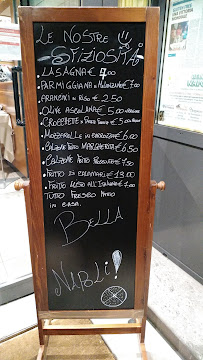 Le NOSTRE
SFIZIOSITÀ
LASAGNA € 7,00
PARMIGGIANA di MELANZANE € 7,00
ARANCINI di RISO € 2.50
OLIVE ASCOLANE € 5.00
CROCCHETTE di € 5.00
MOZZARELLE IN CARROZZA € 6.00
CALZONE FRITTO MARGHERITA € 6.50
CALZONE FRITTO PROSCIUTTO € 7.50
FRITTO DI CALAMARI € 13.00
FRITTO MISTO ALL'ITALIANA € 7.00
TUTTO FRESCO FATTO
IN CASA.
BELLA
NAPOLI!